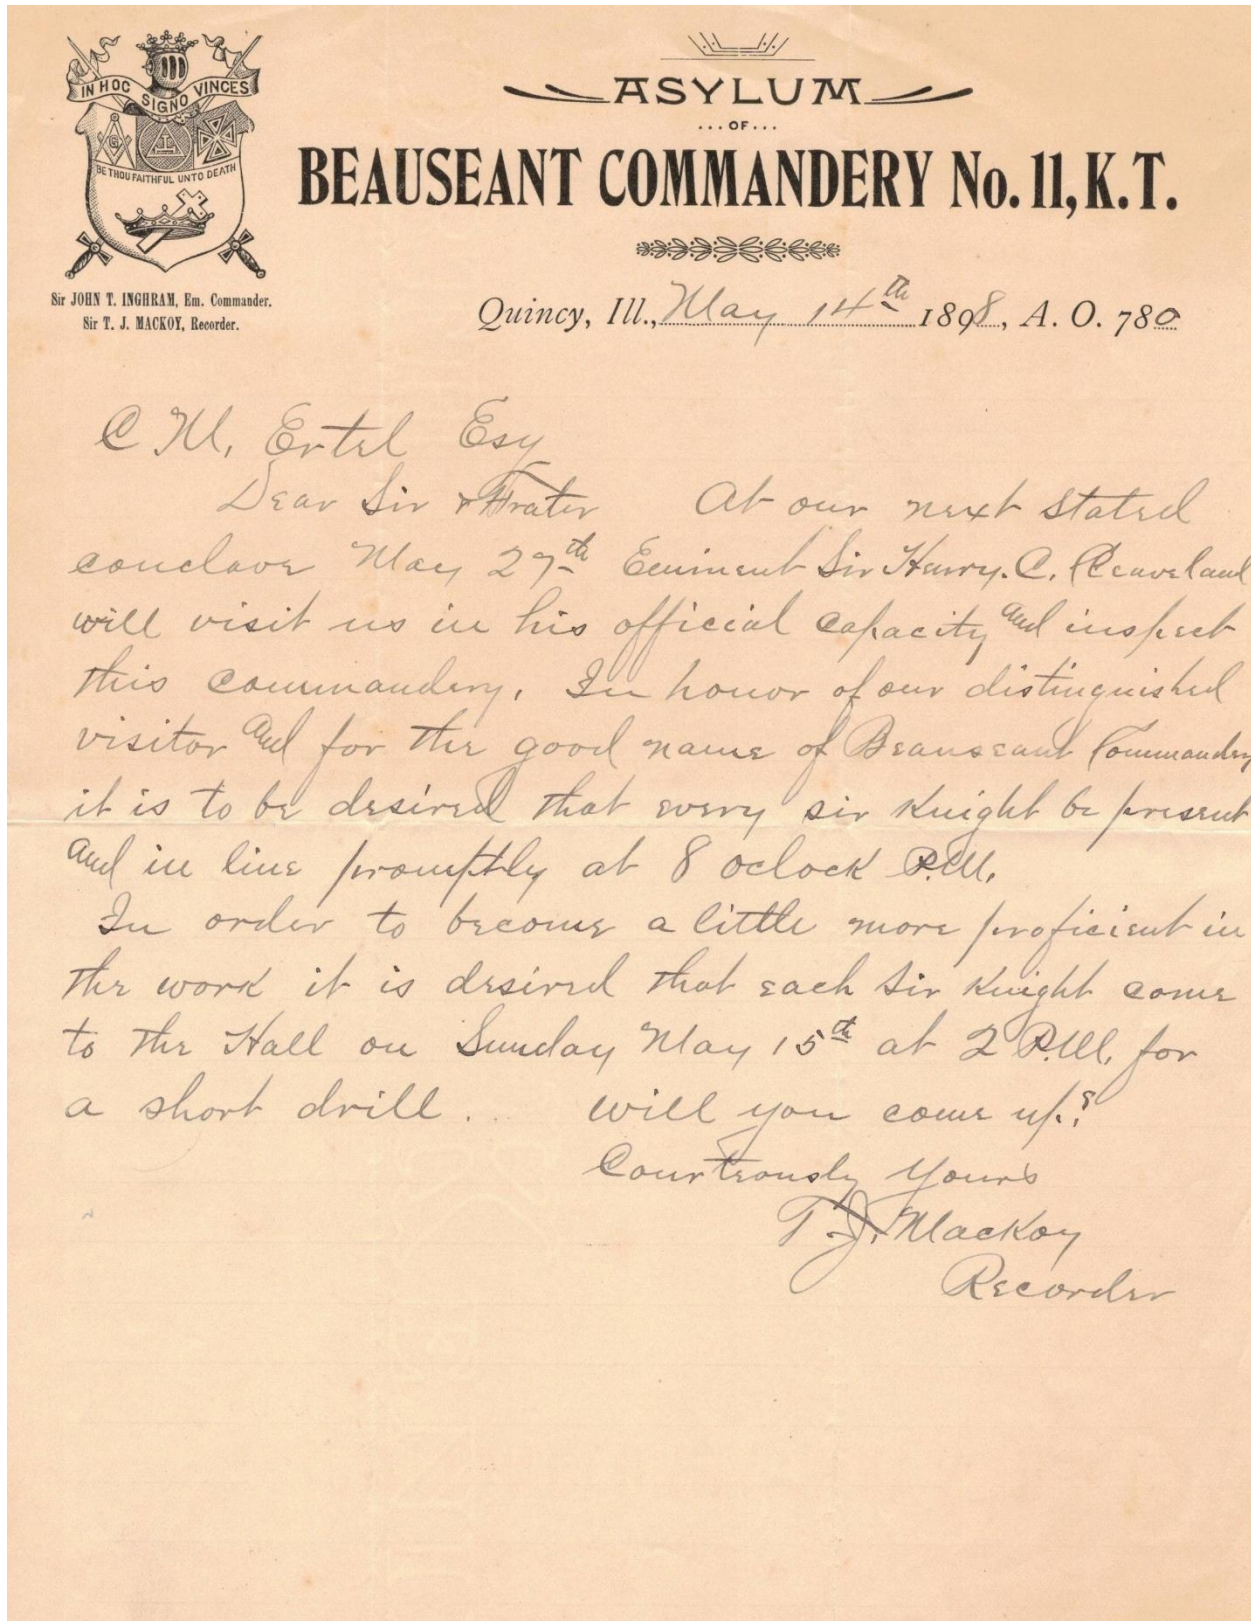 IN HOC SIGNO VINCES
G
BE THOU FAITHFUL UNTO DEATH
Sir JOHN T. INGHRAM, Em. Commander.
Sir T. J. MACKOY, Recorder.
ASYLUM
...OF...
BEAUSEANT COMMANDERY No. 11, K. T.
Quincy, Ill., May 14th 1898, A. O. 780
C M. Ertel Esq
Dear Sir & Frater At our next stated
conclave May 27th Eminent Sir Harry. C. Cleaveland
will visit us in his official capacity and inspect
this commandery. In honor of our distinguished
visitor and for the good name of Beauseant Commandery
it is to be desired that every sir Knight be present
and in line promptly at 8 oclock P.M.
In order to become a little more proficient in
the work it is desired that each Sir Knight come
to the Hall on Sunday May 15th at 2 P.M. for
a short drill. will you come up?
Courteously Yours
T. J. Mackoy
Recorder